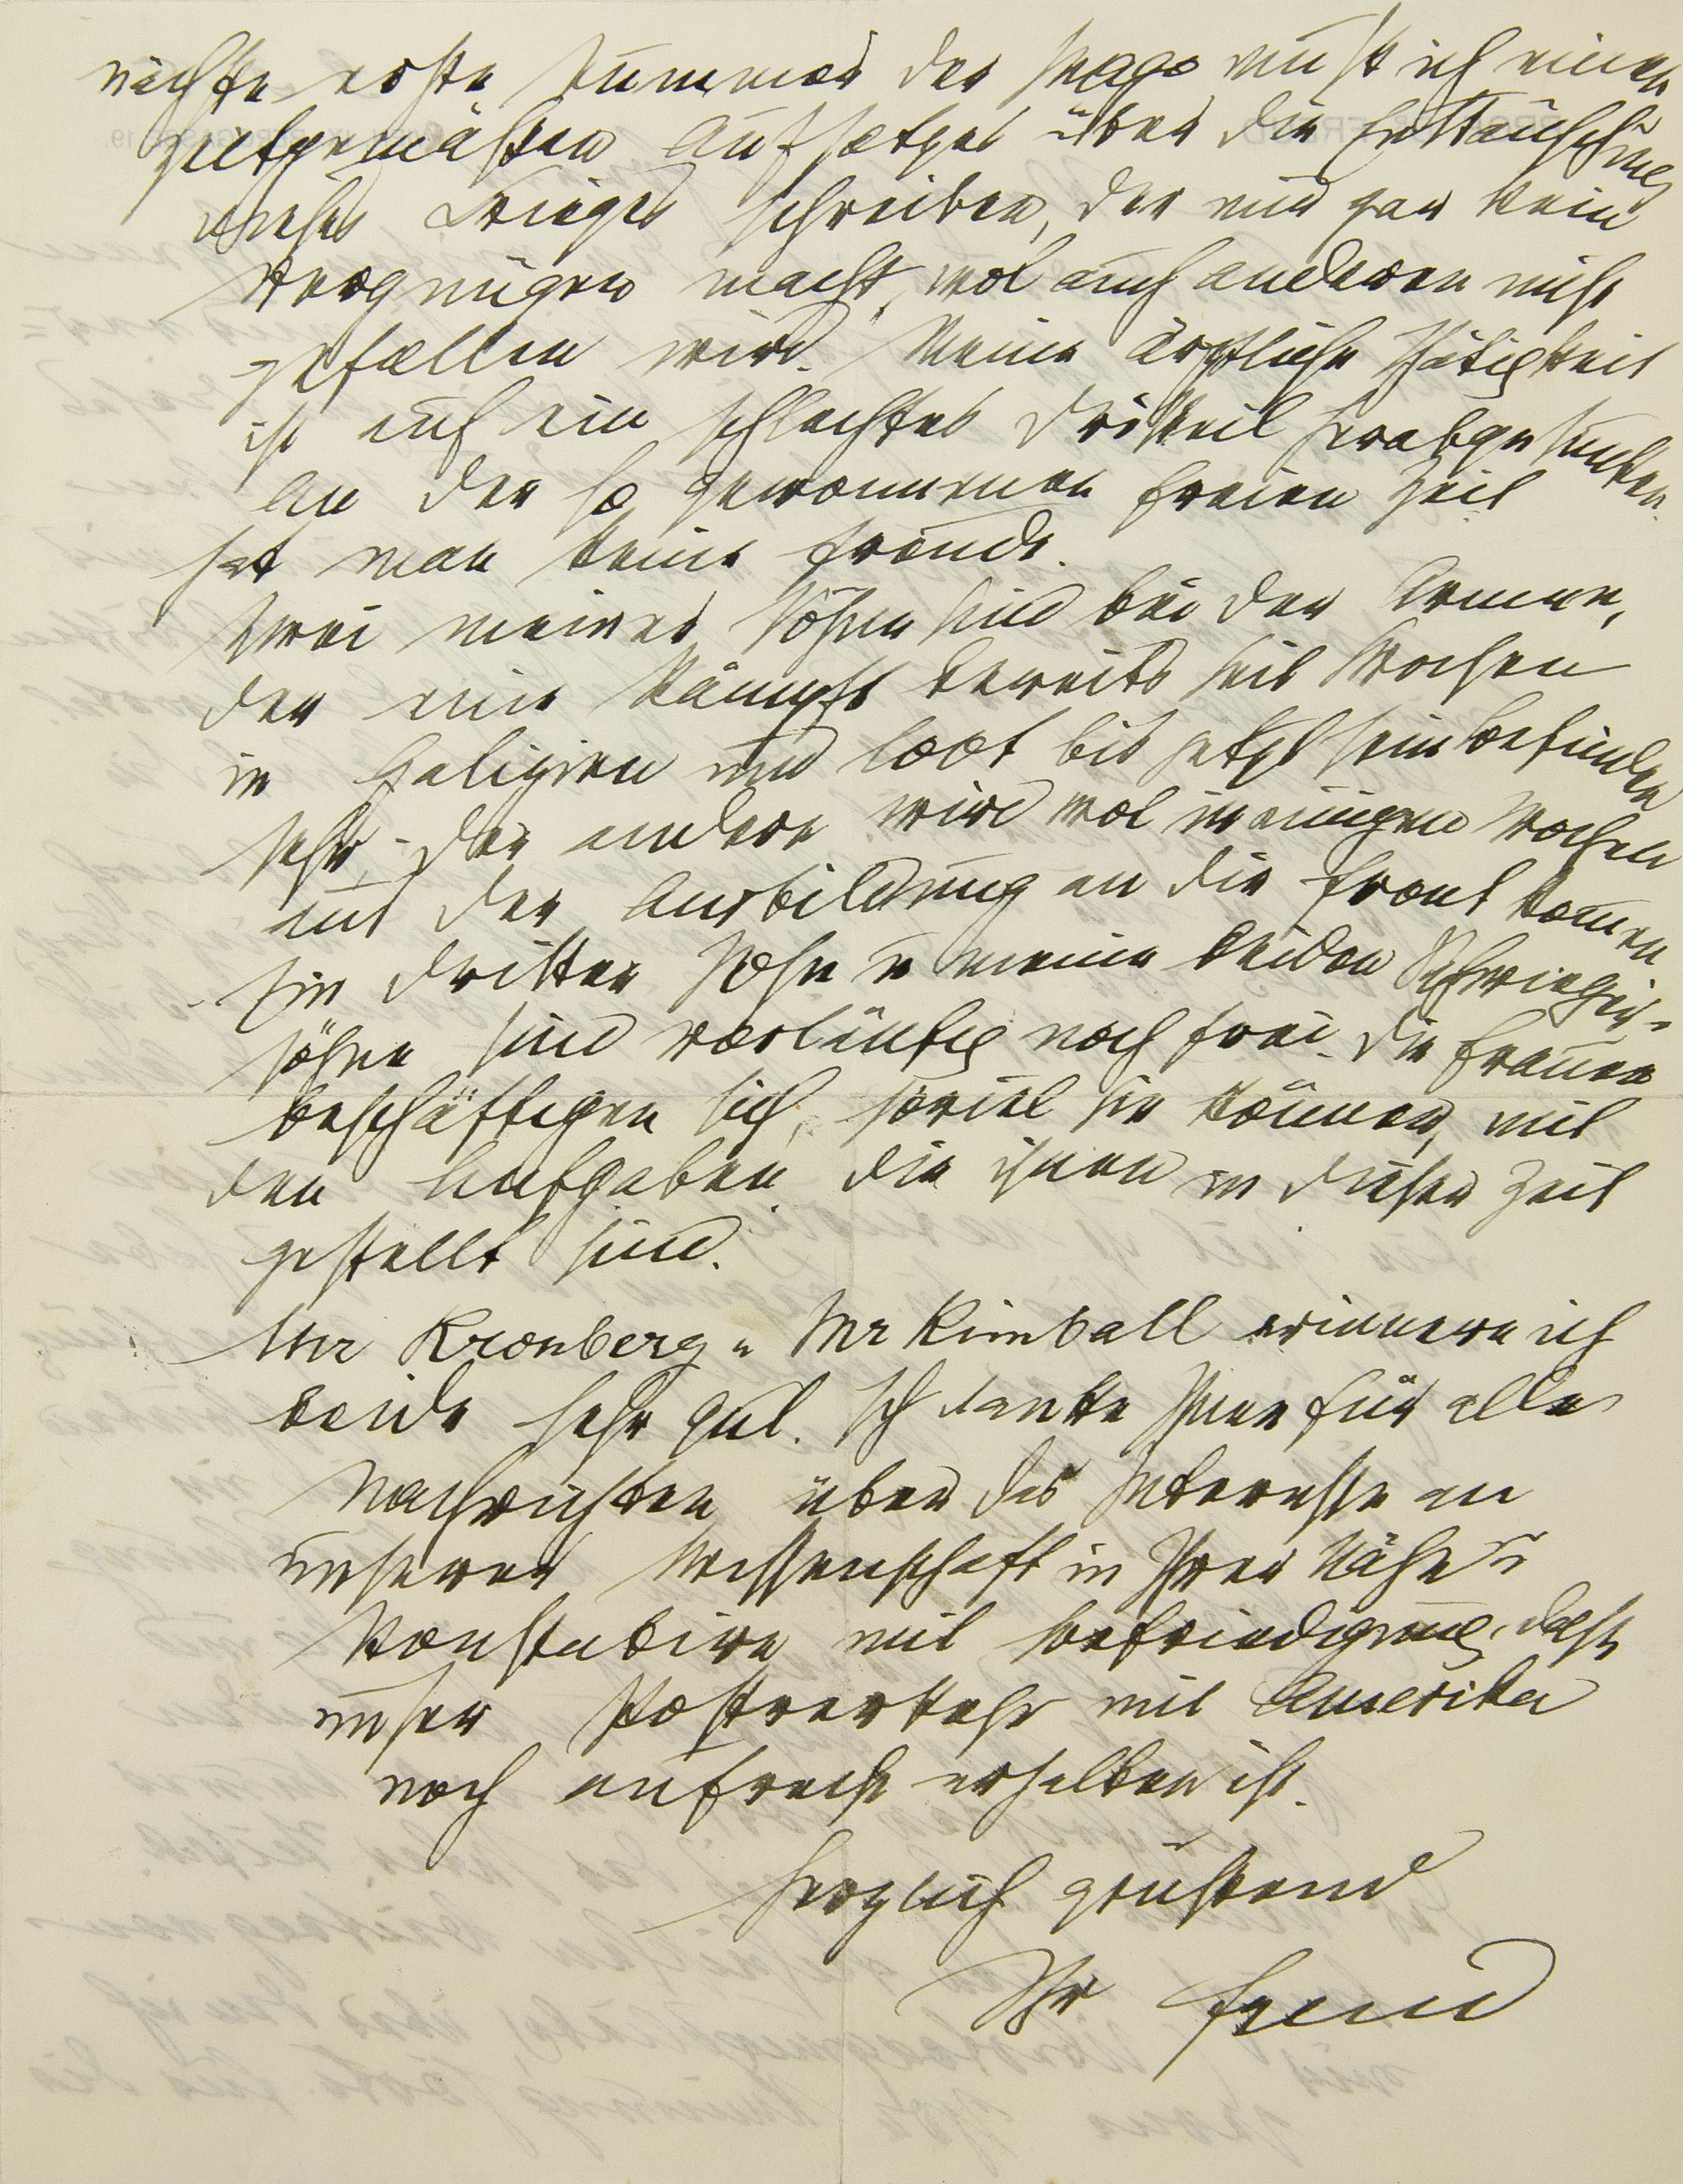 nächste erste Nummer der Imago mußt ich einen
zeitgemäßen Aufsatz über die Enttäuschung
dieses Krieges schreiben, der mir gar kein
Vergnügen macht, wol auch anderen nicht
gefallen wird. Meine ärztliche Thätigkeit
ist auf ein schlechtes Dritteil herabgesunken.
An der so gewonnenen freien Zeit
hat man keine Freude.
Zwei meiner Söhne sind bei der Armee,
der eine kämpft bereits seit Wochen
in Galizien und lobt bis jetzt sein Befinden
sehr, der andere wird wol in einigen Wochen
aus der Ausbildung an die Front kommen
Ein dritter Sohn u meine beiden Schwieger-
söhne sind vorläufig noch frei. Die Frauen
beschäftigen sich, soviel sie können, mit
den Aufgaben, die ihnen in dieser Zeit
gestellt sind.
Mr Kronberg u Mr Kimball erinnere ich
beide sehr gut. Ich danke Ihnen für alle
Nachrichten über das Interesse an
unserer Wissenschaft in Ihrer Nähe u
konstatire mit Befriedigung, daß
unser Postverkehr mit Amerika
noch aufrecht erhalten ist.
Herzlich grüßend
Ihr Freud